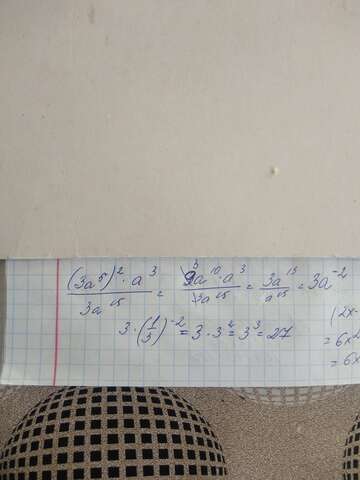 (3a⁵)² · a³ / 3a¹⁵ = 9a¹⁰ · a³ / 3a¹⁵ = 3a¹³ / a¹⁵ = 3a⁻²
3 · (1/3)⁻² = 3 · 3² = 3³ = 27
(2x-
= 6x²
= 6x